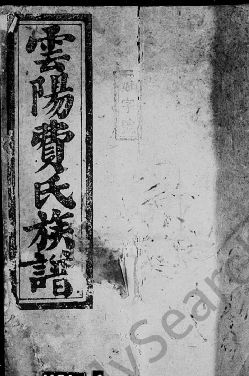 雲陽費氏族譜
MySearch